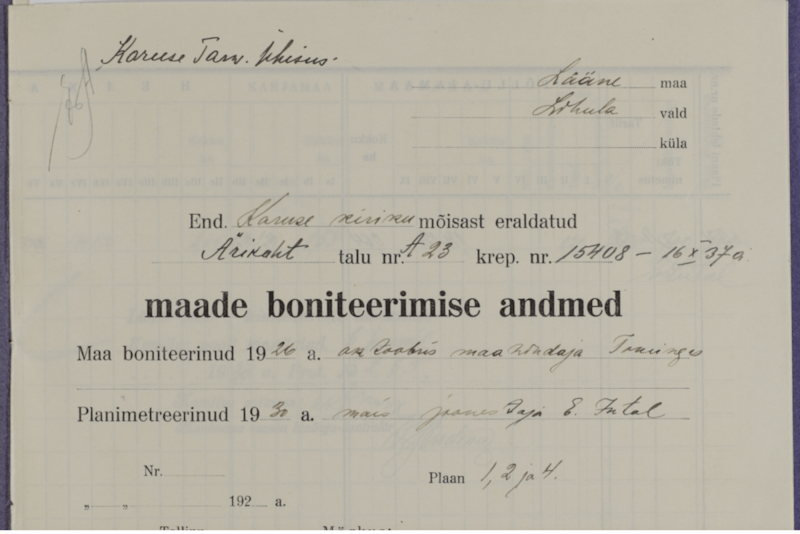 Karuse Tarw. Ühisus.
Lääne maa
Lihula vald
küla
End. Karuse kiriku mõisast eraldatud
Ärikoht talu nr. A 23 krep. nr. 15408 – 16 X 37 a
maade boniteerimise andmed
Maa boniteerinud 1926 a. oktoobris maahindaja Tominga
Planimetreerinud 1930 a. mais joonestaja E. Intal
Nr.
Plaan 1, 2 ja 4.
„ „ 192 a.